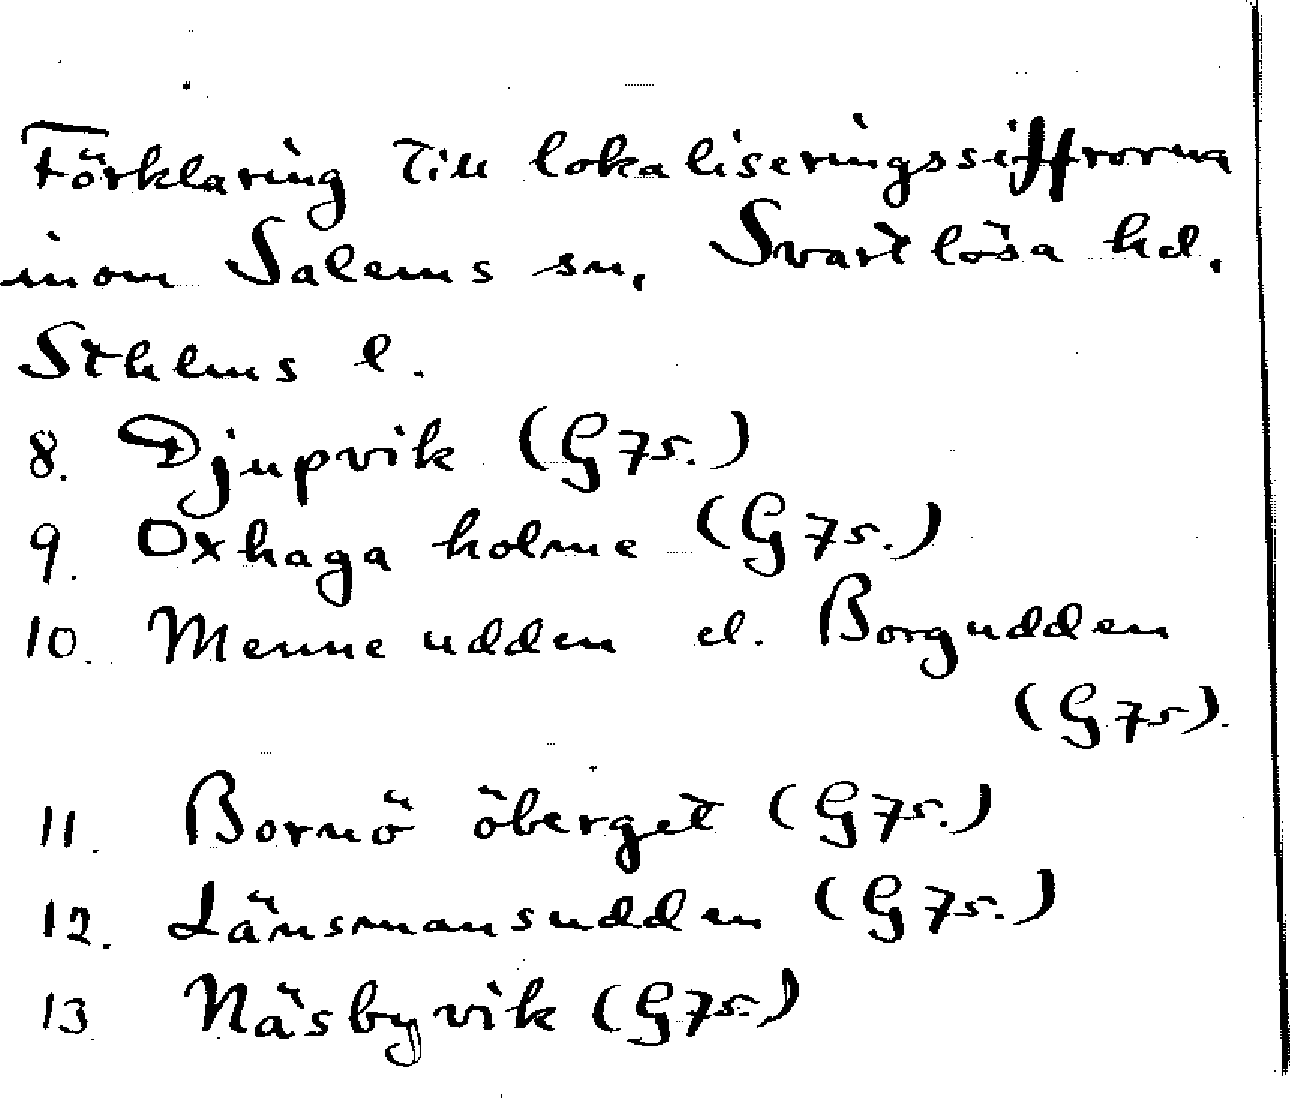 Förklaring till lokaliseringssiffrorna
inom Salems sn, Svartlösa hd,
Sthlms l.
8. Djupvik (G 7s.)
9. Oxhaga holme (G 7s.)
10. Menneudden el. Borgudden
(G 7s).
11. Bornö öberget (G 7s.)
12. Länsmansudden (G 7s.)
13 Näsbyvik (G 7s.)